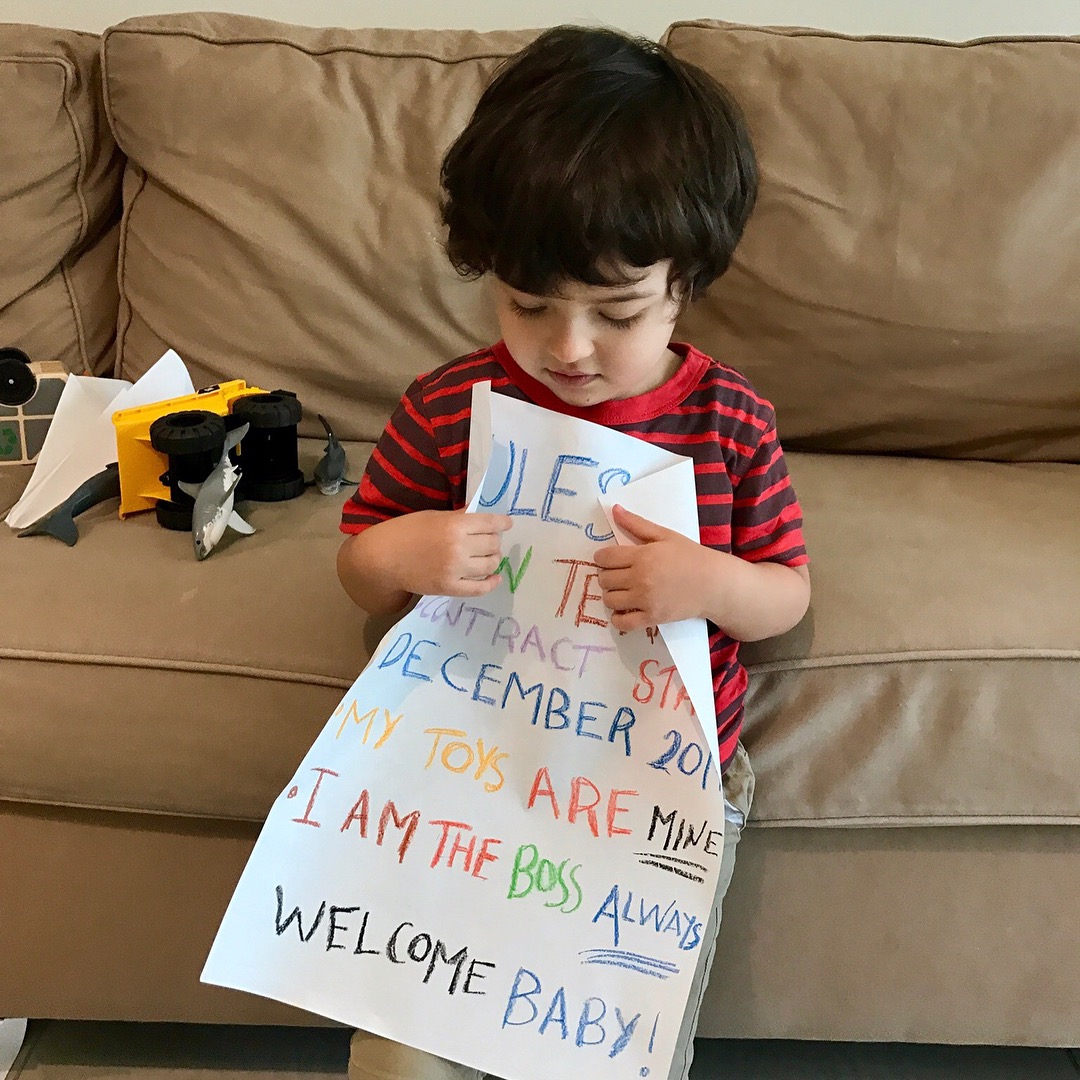 ULES
TE
CONTRACT STA
DECEMBER 201
• MY TOYS ARE MINE
• I AM THE BOSS ALWAYS
WELCOME BABY!